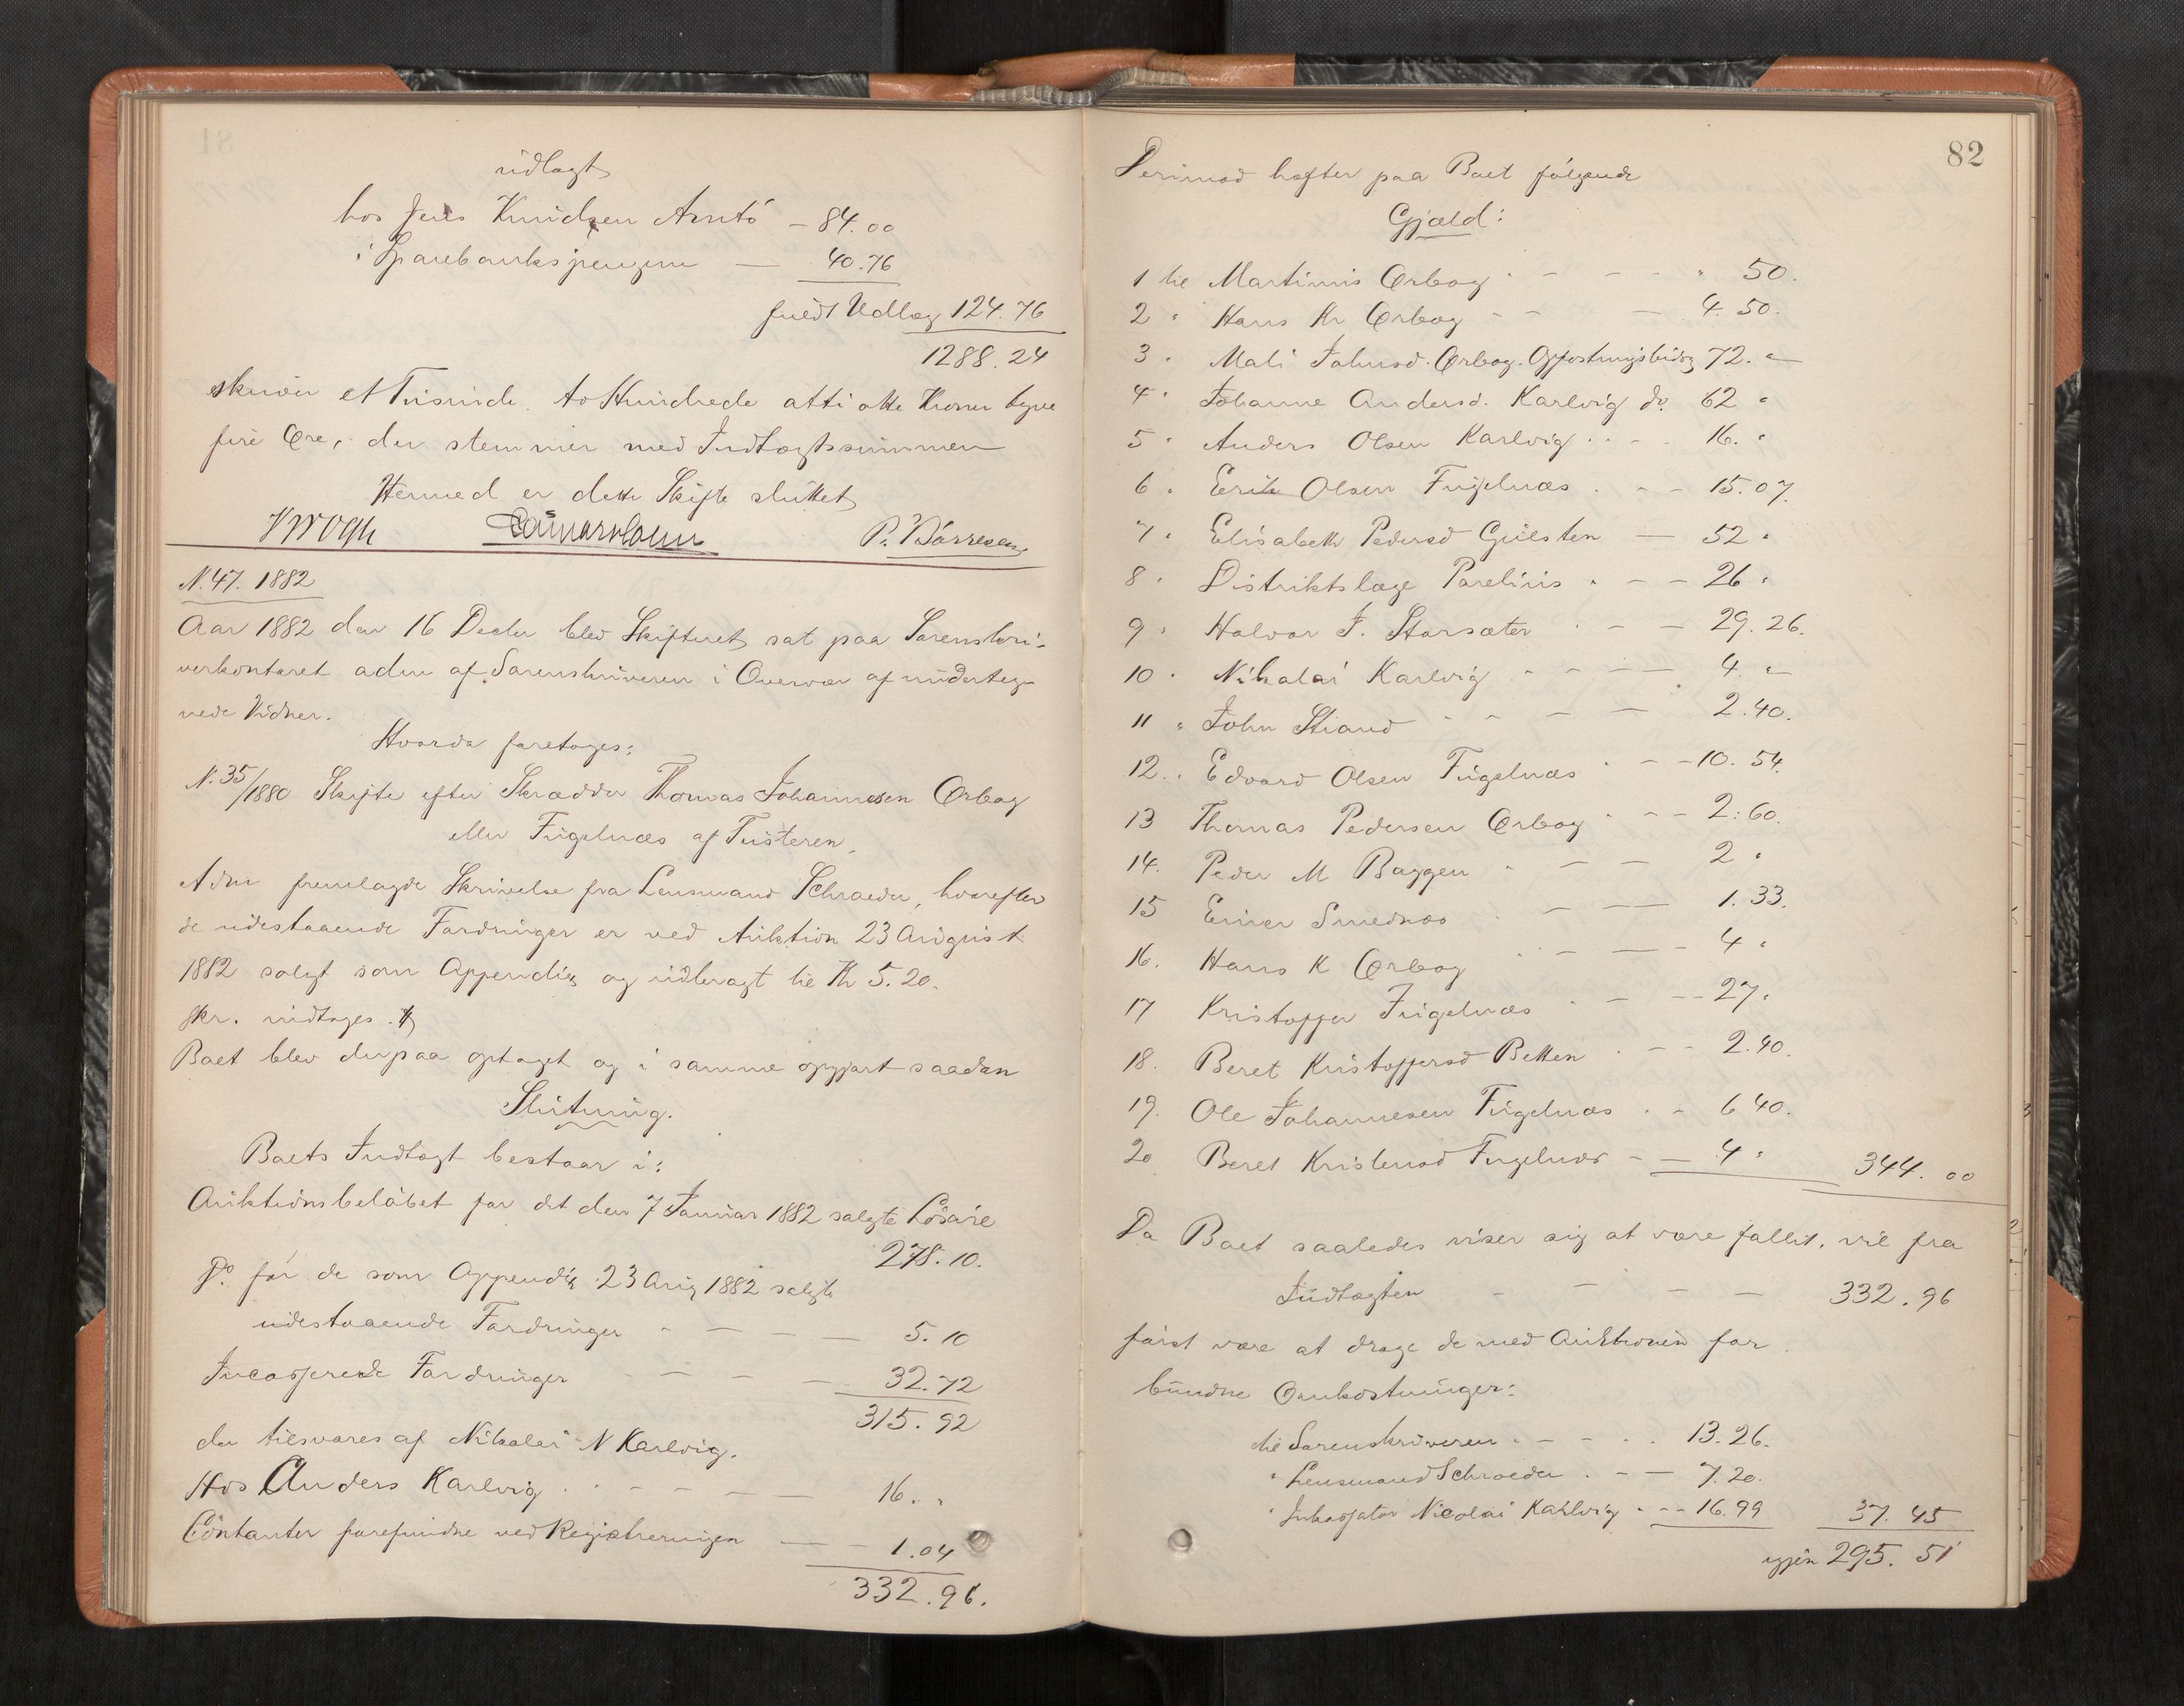 udlagt
hos Jens Knudsen Arntö – 84.00
i Sparebankspengene — 40.76
fuldt Udlæg 124.76
1288.24
skriver et Tusinde to Hundrede otti otte Kroner tyve
fire Øre, der stemmer med Indtægtssummen
Hermed er dette Skifte sluttet
Krogh P. Börresen
N. 47. 1882
Aar 1882 den 16 Decbr blev Skifteret sat paa Sorenskri-
verkontoret adm af Sorenskriveren i Overvær af underteg-
nede Vidner.
Hvorda foretoges:
N. 35/1880 Skifte efter Skrædder Thomas Johannesen Ørbog
eller Fugelnæs af Tusteren.
Adm fremlagde Skrivelse fra Lensmand Schrøder, hvorefter
de udestaaende Fordringer er ved Auktion 23 August
1882 solgt som Appendix og udbragt til Kr 5.20.
Skr. indtages.
Boet blev derpaa optaget og i samme opgjort saadan
Slutning.
Boets Indtægt bestaar i:
Auktionsbelöbet for det den 7 Januar 1882 solgte Lösöre
278.10.
Do for de som Appendix 23 Aug 1882 solgte
udestaaende Fordringer - — - — 5.10
Incasserede Fordringer - — - — 32.72
315.92
der tilsvares af Nikolai N Karlvig.
Hos Anders Karlvig . - - - — — 16. "
Contanter forefundne ved Registreringen — - 1.04
332.96.
82
Derimod hefter paa Boet fölgende
Gjæld:
1 til Martinus Ørbog - - - - " 50.
2 " Hans Kr Ørbog - - — 4.50.
3 " Mali Johnsd. Ørbog. Opfostringsbidrag 72. "
4 " Johanne Andersd. Karlvig do. 62 "
5 " Anders Olsen Karlvig . . - . 16. "
6 " Erik Olsen Fugelnæs . - - 15.07.
7 " Elisabeth Pedersd Gulsten — 52 "
8 " Distriktslæge Parelius . - - 26 "
9 " Halvor J. Storsæter - - — 29.26.
10 " Nikolai Karlvig - - - — 4. "
11 " John Strand - - - — 2.40.
12. " Edvard Olsen Fugelnæs - - - 10.54.
13 Thomas Pedersen Ørbog - - - 2:60.
14. Peder M Baggen - — — 2 "
15 Einer Smednæs - — — 1.33.
16. Hans K Ørbog - — - 4 "
17 Kristoffer Fugelnæs - - - 27 "
18. Beret Kristoffersd Betten . - - 2.40.
19. Ole Johannesen Fugelnæs . - 6 40.
20 Beret Kristensd Fugelnæs - — 4 " 344.00
Da Boet saaledes viser sig at være fallit, vil fra
Indtægten - - - — 332.96
först være at drage de med Auktionen for
bundne Omkostninger:
til Sorenskriveren . - - . . 13.26.
" Lensmand Schrøder . - — 7.20.
" Inkassator Nicolai Karlvig . - - 16.99 37.45
igjen 295.51